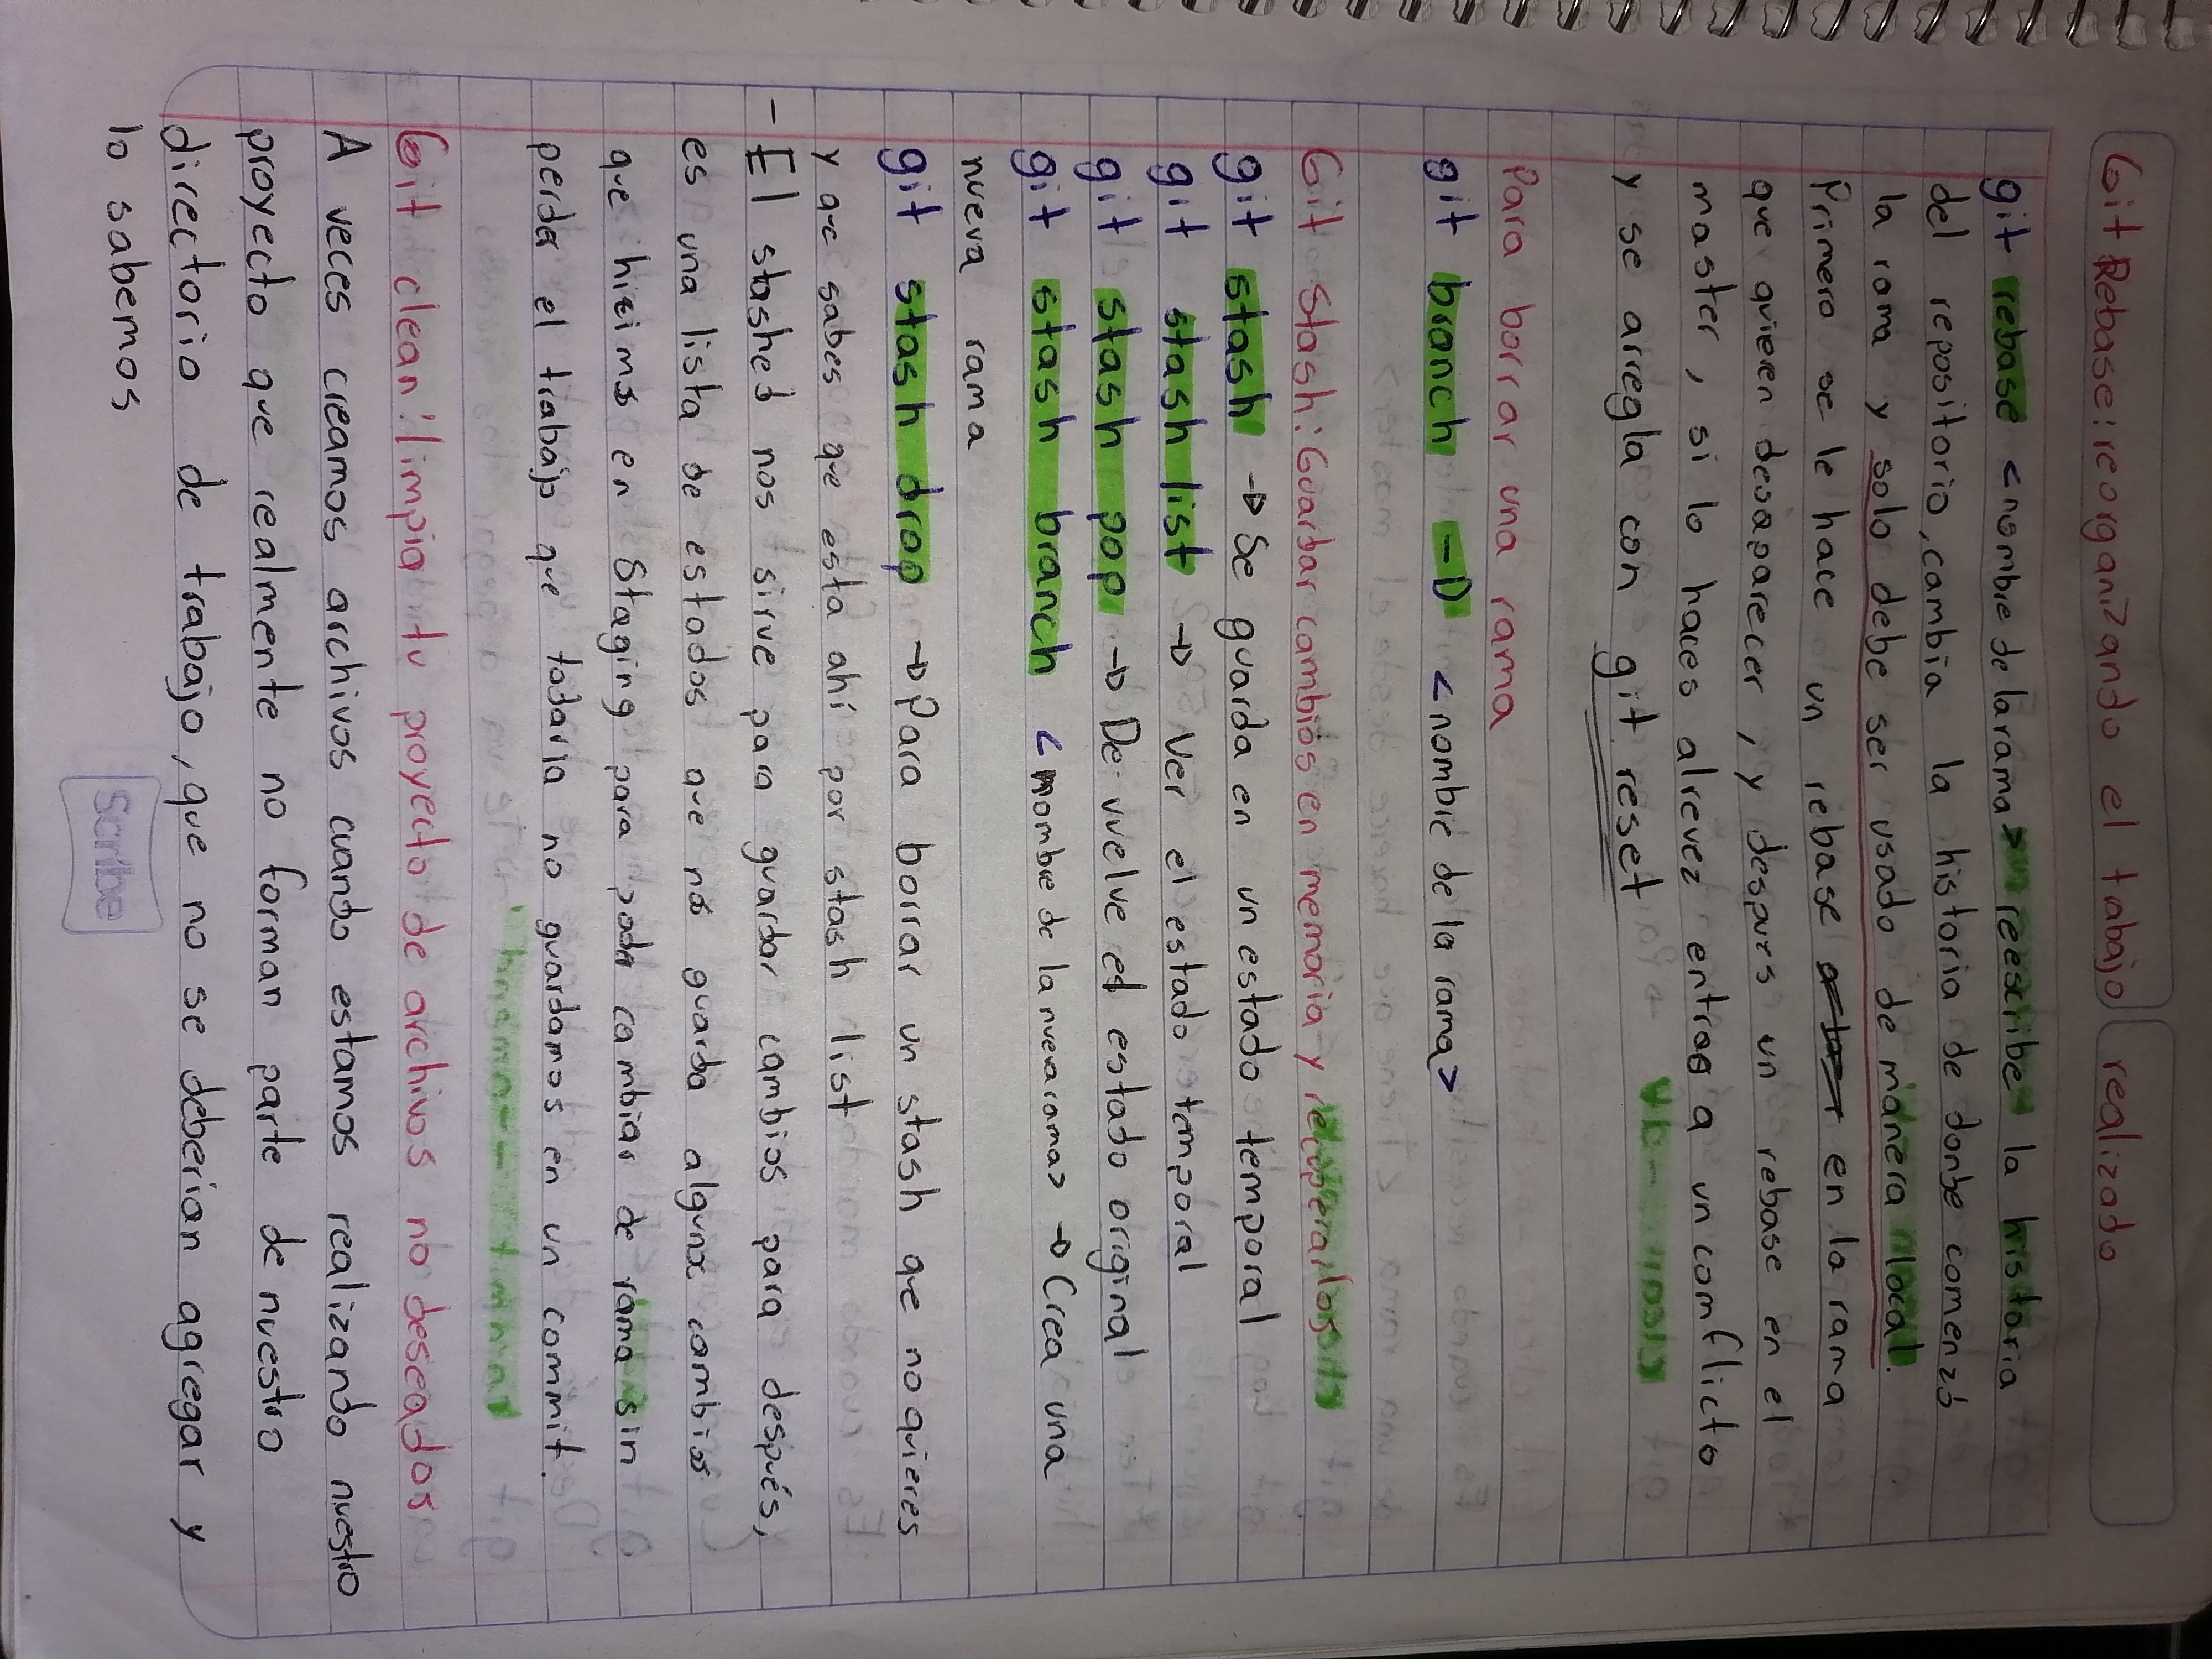 Git Rebase: reorganizando el trabajo realizado
git rebase <nombre de la rama> reescribe la historia
del repositorio, cambia la historia de donde comenzó
la rama y solo debe ser usado de manera local.
Primero se le hace un rebase en la rama
que quieren desaparecer, y despues un rebase en el
master, si lo haces alrevez entras a un comflicto
y se arregla con git reset
Para borrar una rama
git branch -D <nombre de la rama>
Git Stash: Guardar cambios en memoria y recuperarlos
git stash → Se guarda en un estado temporal
git stash list → Ver el estado temporal
git stash pop → De vuelve el estado original
git stash branch <nombre de la nueva rama> → Crea una
nueva rama
git stash drop → Para borrar un stash que no quieres
y que sabes que esta ahí por stash list
- El stashed nos sirve para guardar cambios para después,
es una lista de estados que nos guarda algunos cambios
que hicimos en Staging para poder cambiar de rama sin
perder el trabajo que todavia no guardamos en un commit.
Git clean: limpia tu proyecto de archivos no deseados
A veces creamos archivos cuando estamos realizando nuestro
proyecto que realmente no forman parte de nuestro
directorio de trabajo, que no se deberian agregar y
lo sabemos
Scribe